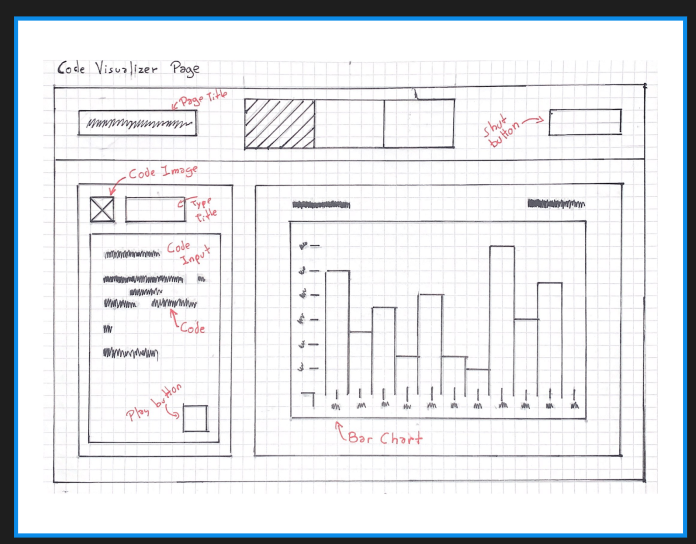 Code Visualizer Page
Page Title
Shut
button
Code Image
Type
title
Code
Input
Code
Play button
Bar Chart